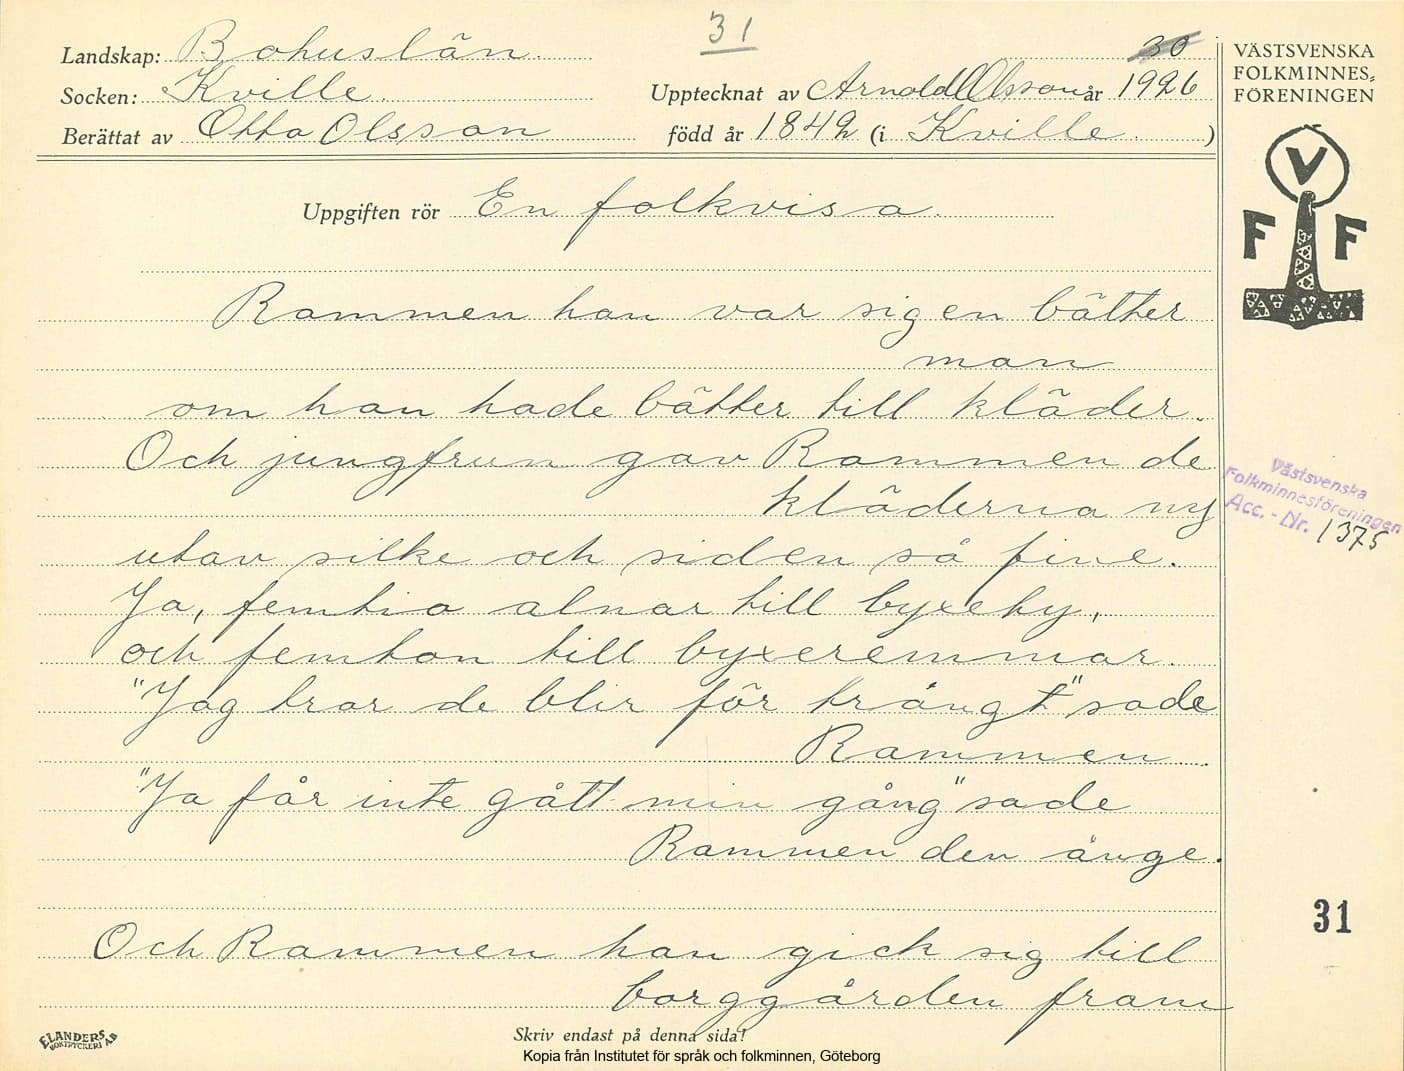 31
Landskap: Bohuslän. 30
Socken: Kville. Upptecknat av Arnold Olsson år 1926
Berättat av Otto Olsson född år 1842 (i Kville.)
Uppgiften rör En folkvisa.
Rammen han var sig en bätter
man
om han hade bätter till kläder.
Och jungfrun gav Rammen de
kläderna ny
utav silke och siden så fine.
Ja, femtio alnar till byxety,
och femton till byxeremmar.
"Jag tror de blir för trångt" sade
Rammen.
"Ja får inte gått min gång" sade
Rammen den unge.
Och Rammen han gick sig till
borggården fram
Skriv endast på denna sida!
Kopia från Institutet för språk och folkminnen, Göteborg
ELANDERS
BOKTRYCKERI AB
VÄSTSVENSKA
FOLKMINNES-
FÖRENINGEN
V
F F
Västsvenska
Folkminnesföreningen
Acc. - Nr. 1375
31